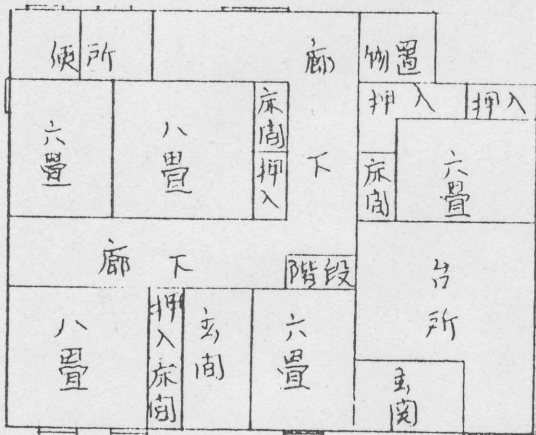 便所
廊下
物置
押入
押入
六畳
八畳
床間
押入
床間
六畳
廊下
階段
台所
八畳
押入
床間
玄関
六畳
玄関